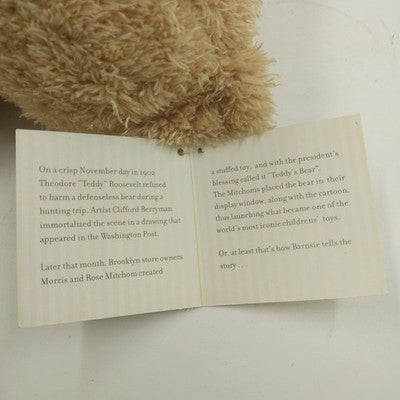 On a crisp November day in 1902
Theodore "Teddy" Roosevelt refused
to harm a defenseless bear during a
hunting trip. Artist Clifford Berryman
immortalized the scene in a drawing that
appeared in the Washington Post.
Later that month, Brooklyn store owners
Morris and Rose Mitchom created
a stuffed toy, and with the president's
blessing called it "Teddy's Bear"
The Mitchoms placed the bear in their
display window, along with the cartoon,
thus launching what became one of the
world's most iconic childrens' toys.
Or, at least that's how Barnsie tells the
story . . .